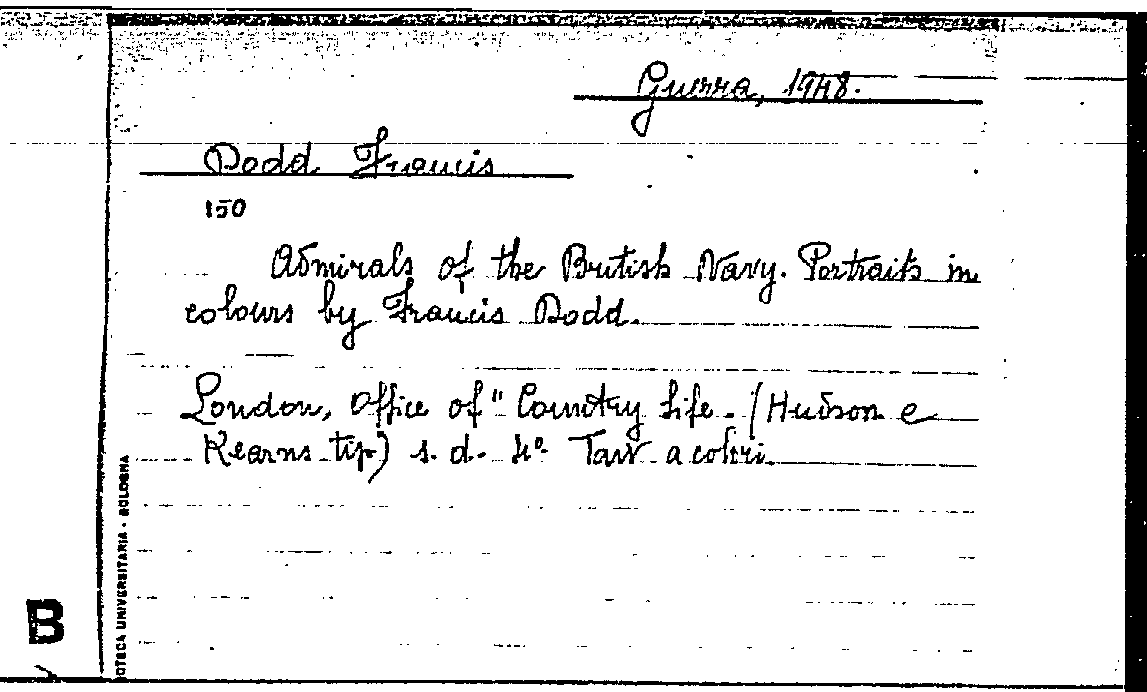 Guerra, 1948.
Dodd Francis
150
Admirals of the British Navy. Portraits in
colours by Francis Dodd.
London, Office of "Country Life. (Hudson e
Kearns tip) s. d. 4° Tav a colori.
OTECA UNIVERSITARIA - BOLOGNA
B